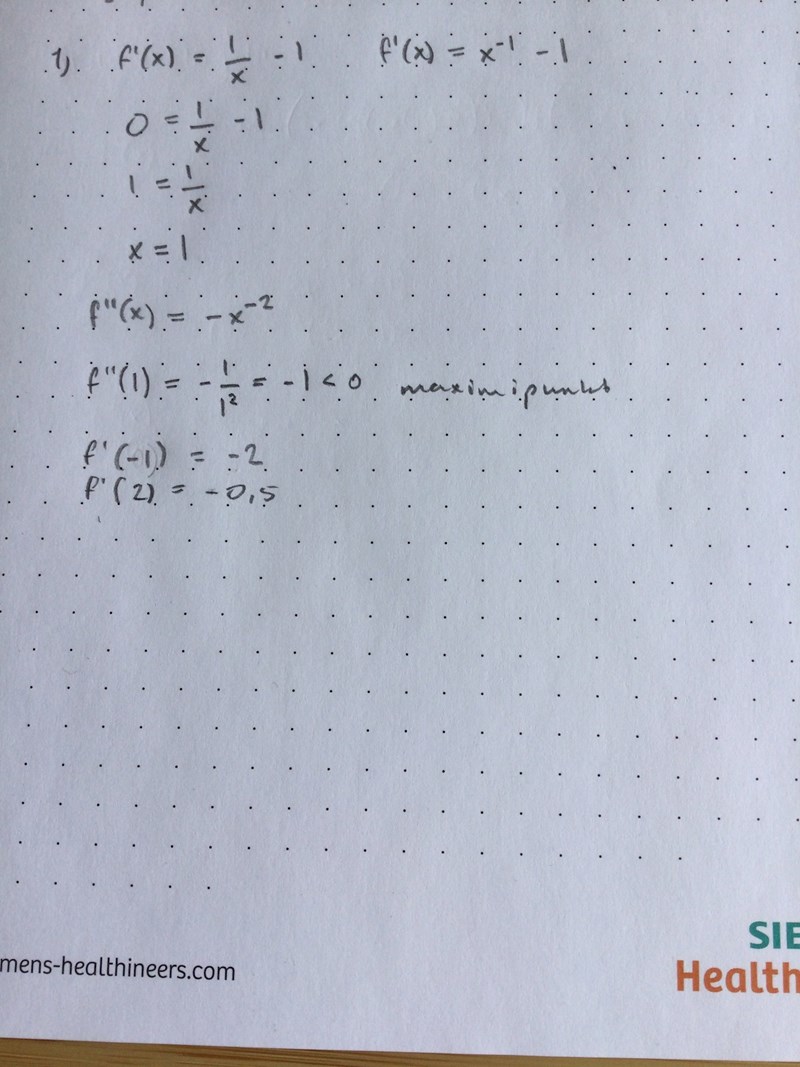 1) f'(x) = 1/x - 1 f'(x) = x⁻¹ - 1
0 = 1/x - 1
1 = 1/x
x = 1
f''(x) = -x⁻²
f''(1) = - 1/1² = -1 < 0 maximipunkt
f'(-1) = -2
f'(2) = -0,5
SIE
mens-healthineers.com Health